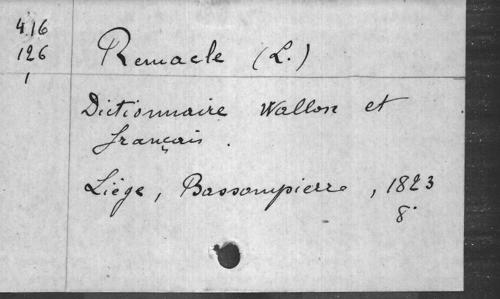 416
126
1
Remacle (L.)
Dictionnaire Wallon et
français.
Liége, Bassompierre, 1823
8°